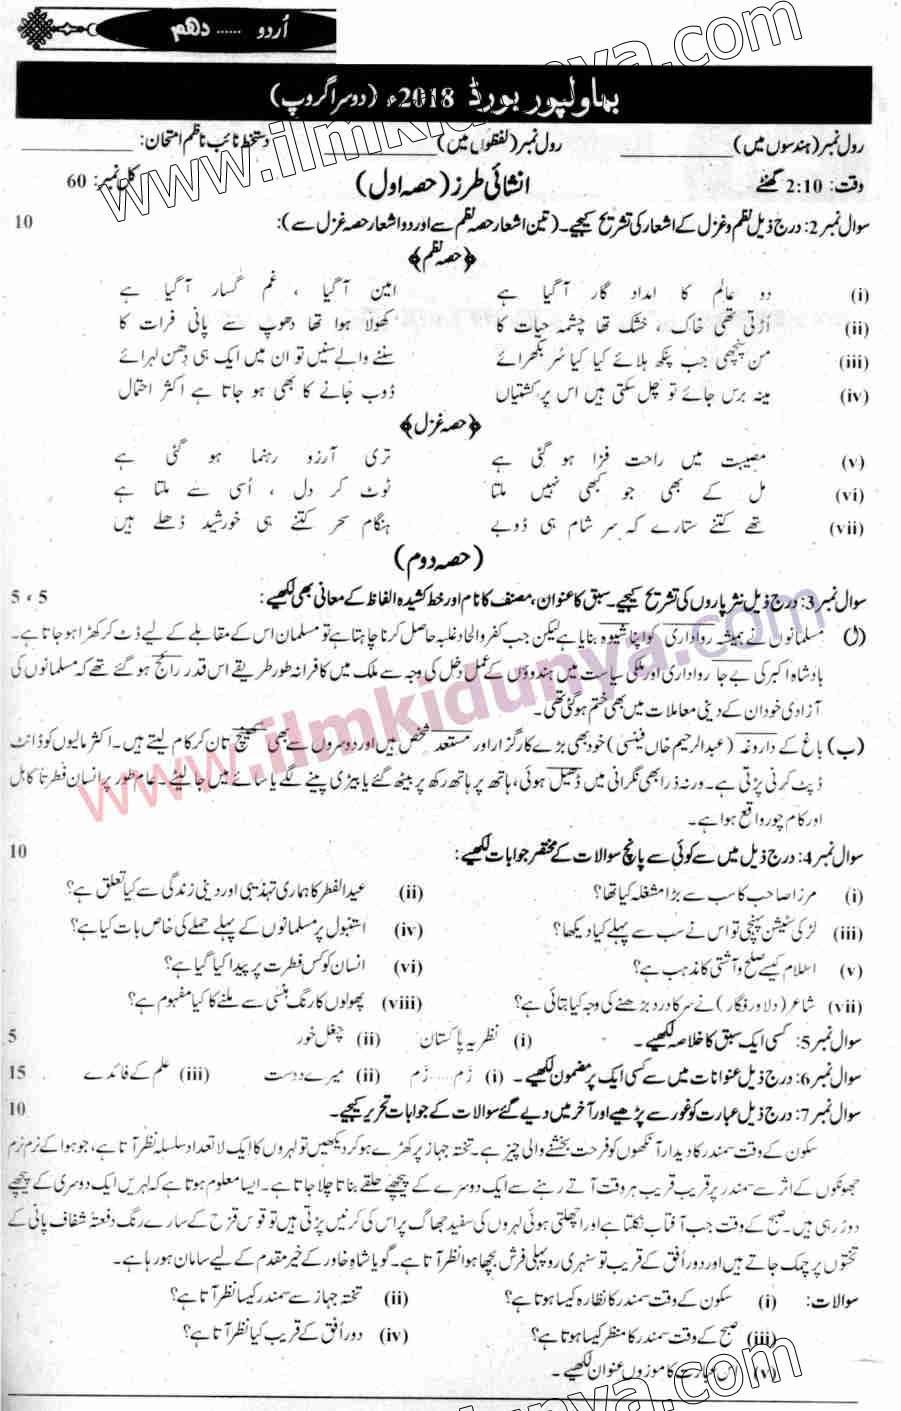 اُردو ...... دھم
بہاولپور بورڈ 2018ء (دوسرا گروپ)
رول نمبر (ہندسوں میں) ____________ رول نمبر (لفظوں میں) ____________ دستخط نائب ناظم امتحان: ____________
وقت: 2:10 گھنٹے انشائی طرز (حصہ اول) کل نمبر: 60
سوال نمبر 2: درج ذیل نظم و غزل کے اشعار کی تشریح کیجیے۔ (تین اشعار حصہ نظم سے اور دو اشعار حصہ غزل سے): 10
﴿حصہ نظم﴾
(i) دو عالم کا امداد گار آ گیا ہے امین آ گیا ، غم گسار آ گیا ہے
(ii) اُڑتی تھی خاک ، خشک تھا چشمہ حیات کا کھولا ہوا تھا دھوپ سے پانی فرات کا
(iii) من پنچھی جب پنکھ ہلائے کیا کیا سُر بکھرائے سننے والے سنیں تو ان میں ایک ہی دھن لہرائے
(iv) مینہ برس جائے تو چل سکتی ہیں اس پر کشتیاں ڈوب جانے کا بھی ہو جاتا ہے اکثر احتمال
﴿حصہ غزل﴾
(v) مصیبت میں راحت فزا ہو گئی ہے تری آرزو رہنما ہو گئی ہے
(vi) مل کے بھی جو کبھی نہیں ملتا ٹوٹ کر دل ، اُسی سے ملتا ہے
(vii) تھے کتنے ستارے کہ سر شام ہی ڈوبے ہنگام سحر کتنے ہی خورشید ڈھلے ہیں
(حصہ دوم)
سوال نمبر 3: درج ذیل نثر پاروں کی تشریح کیجیے۔ سبق کا عنوان، مصنف کا نام اور خط کشیدہ الفاظ کے معانی بھی لکھیے: 5 ، 5
(ل) مسلمانوں نے ہمیشہ رواداری کو اپنا شیوہ بنایا ہے لیکن جب کفر و الحاد غلبہ حاصل کرنا چاہتا ہے تو مسلمان اس کے مقابلے کے لیے ڈٹ کر کھڑا ہو جاتا ہے۔
بادشاہ اکبر کی بے جا رواداری اور ملکی سیاست میں ہندوؤں کے عمل دخل کی وجہ سے ملک میں کافرانہ طور طریقے اس قدر رائج ہو گئے تھے کہ مسلمانوں کی
آزادی خود ان کے دینی معاملات میں بھی ختم ہو گئی تھی۔
(ب) باغ کے داروغہ (عبدالرحیم خاں فینسی) خود بھی بڑے کارگزار اور مستعد شخص ہیں اور دوسروں سے بھی کھینچ تان کر کام لیتے ہیں۔ اکثر مالیوں کو ڈانٹ
ڈپٹ کرنی پڑتی ہے۔ ورنہ ذرا بھی نگرانی میں ڈھیل ہوئی، ہاتھ پر ہاتھ رکھ پر بیٹھ گئے یا بیڑی پینے لگے یا سائے میں جا لیٹے۔ عام طور پر انسان فطرتاً کاہل
اور کام چور واقع ہوا ہے۔
سوال نمبر 4: درج ذیل میں سے کوئی سے پانچ سوالات کے مختصر جوابات لکھیے: 10
(i) مرزا صاحب کا سب سے بڑا مشغلہ کیا تھا؟ (ii) عیدالفطر کا ہماری تہذیبی اور دینی زندگی سے کیا تعلق ہے؟
(iii) لڑکی سٹیشن پہنچی تو اس نے سب سے پہلے کیا دیکھا؟ (iv) استنبول پر مسلمانوں کے پہلے حملے کی خاص بات کیا ہے؟
(v) اسلام کیسے صلح و آشتی کا مذہب ہے؟ (vi) انسان کو کس فطرت پر پیدا کیا گیا ہے؟
(vii) شاعر (دلاور فگار) نے سر کا درد بڑھنے کی وجہ کیا بتائی ہے؟ (viii) پھولوں کا رنگ ہنسی سے ملنے کا کیا مفہوم ہے؟
سوال نمبر 5: کسی ایک سبق کا خلاصہ لکھیے۔ (i) نظریہ پاکستان (ii) چغل خور 5
سوال نمبر 6: درج ذیل عنوانات میں سے کسی ایک پر مضمون لکھیے۔ (i) زم ..... زم (ii) میرے دوست (iii) علم کے فائدے 15
سوال نمبر 7: درج ذیل عبارت کو غور سے پڑھیے اور آخر میں دیے گئے سوالات کے جوابات تحریر کیجیے۔ 10
سکون کے وقت سمندر کا دیدار آنکھوں کو فرحت بخشنے والی چیز ہے۔ تختہ جہاز پر کھڑے ہو کر دیکھیں تو لہروں کا ایک لاتعداد سلسلہ نظر آتا ہے، جو ہوا کے نرم نرم
جھونکوں کے اثر سے سمندر پر قریب قریب ہر وقت آتے رہنے سے ایک دوسرے کے پیچھے حلقے بناتا چلا جاتا ہے۔ ایسا معلوم ہوتا ہے کہ لہریں ایک دوسری کے پیچھے
دوڑ رہی ہیں۔ صبح کے وقت جب آفتاب نکلتا ہے اور اچھلتی ہوئی لہروں کی سفید جھاگ پر اس کی کرنیں پڑتی ہیں تو قوس قزح کے سارے رنگ دفعتہً شفاف پانی کے
تختوں پر چمک جاتے ہیں اور دور اُفق کے قریب تو سنہری روپہلی فرش بچھا ہوا نظر آتا ہے۔ گویا شاہ خاور کے خیر مقدم کے لیے سامان ہو رہا ہے۔
سوالات: (i) سکون کے وقت سمندر کا نظارہ کیسا ہوتا ہے؟ (ii) تختہ جہاز سے سمندر کیسا نظر آتا ہے؟
(iii) صبح کے وقت سمندر کا منظر کیسا ہوتا ہے؟ (iv) دور اُفق کے قریب کیا نظر آتا ہے؟
(v) اس عبارت کا موزوں عنوان لکھیے۔
www.ilmkidunya.com
www.ilmkidunya.com